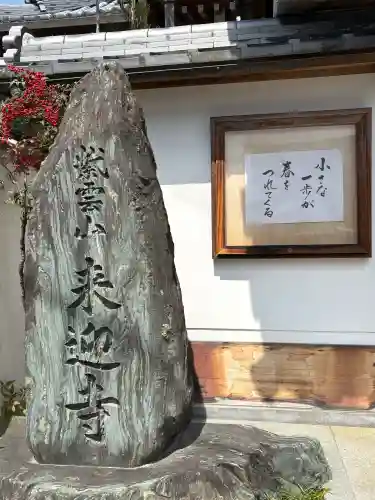 紫雲山
来迎寺
小さな
一歩が
春を
つれてくる